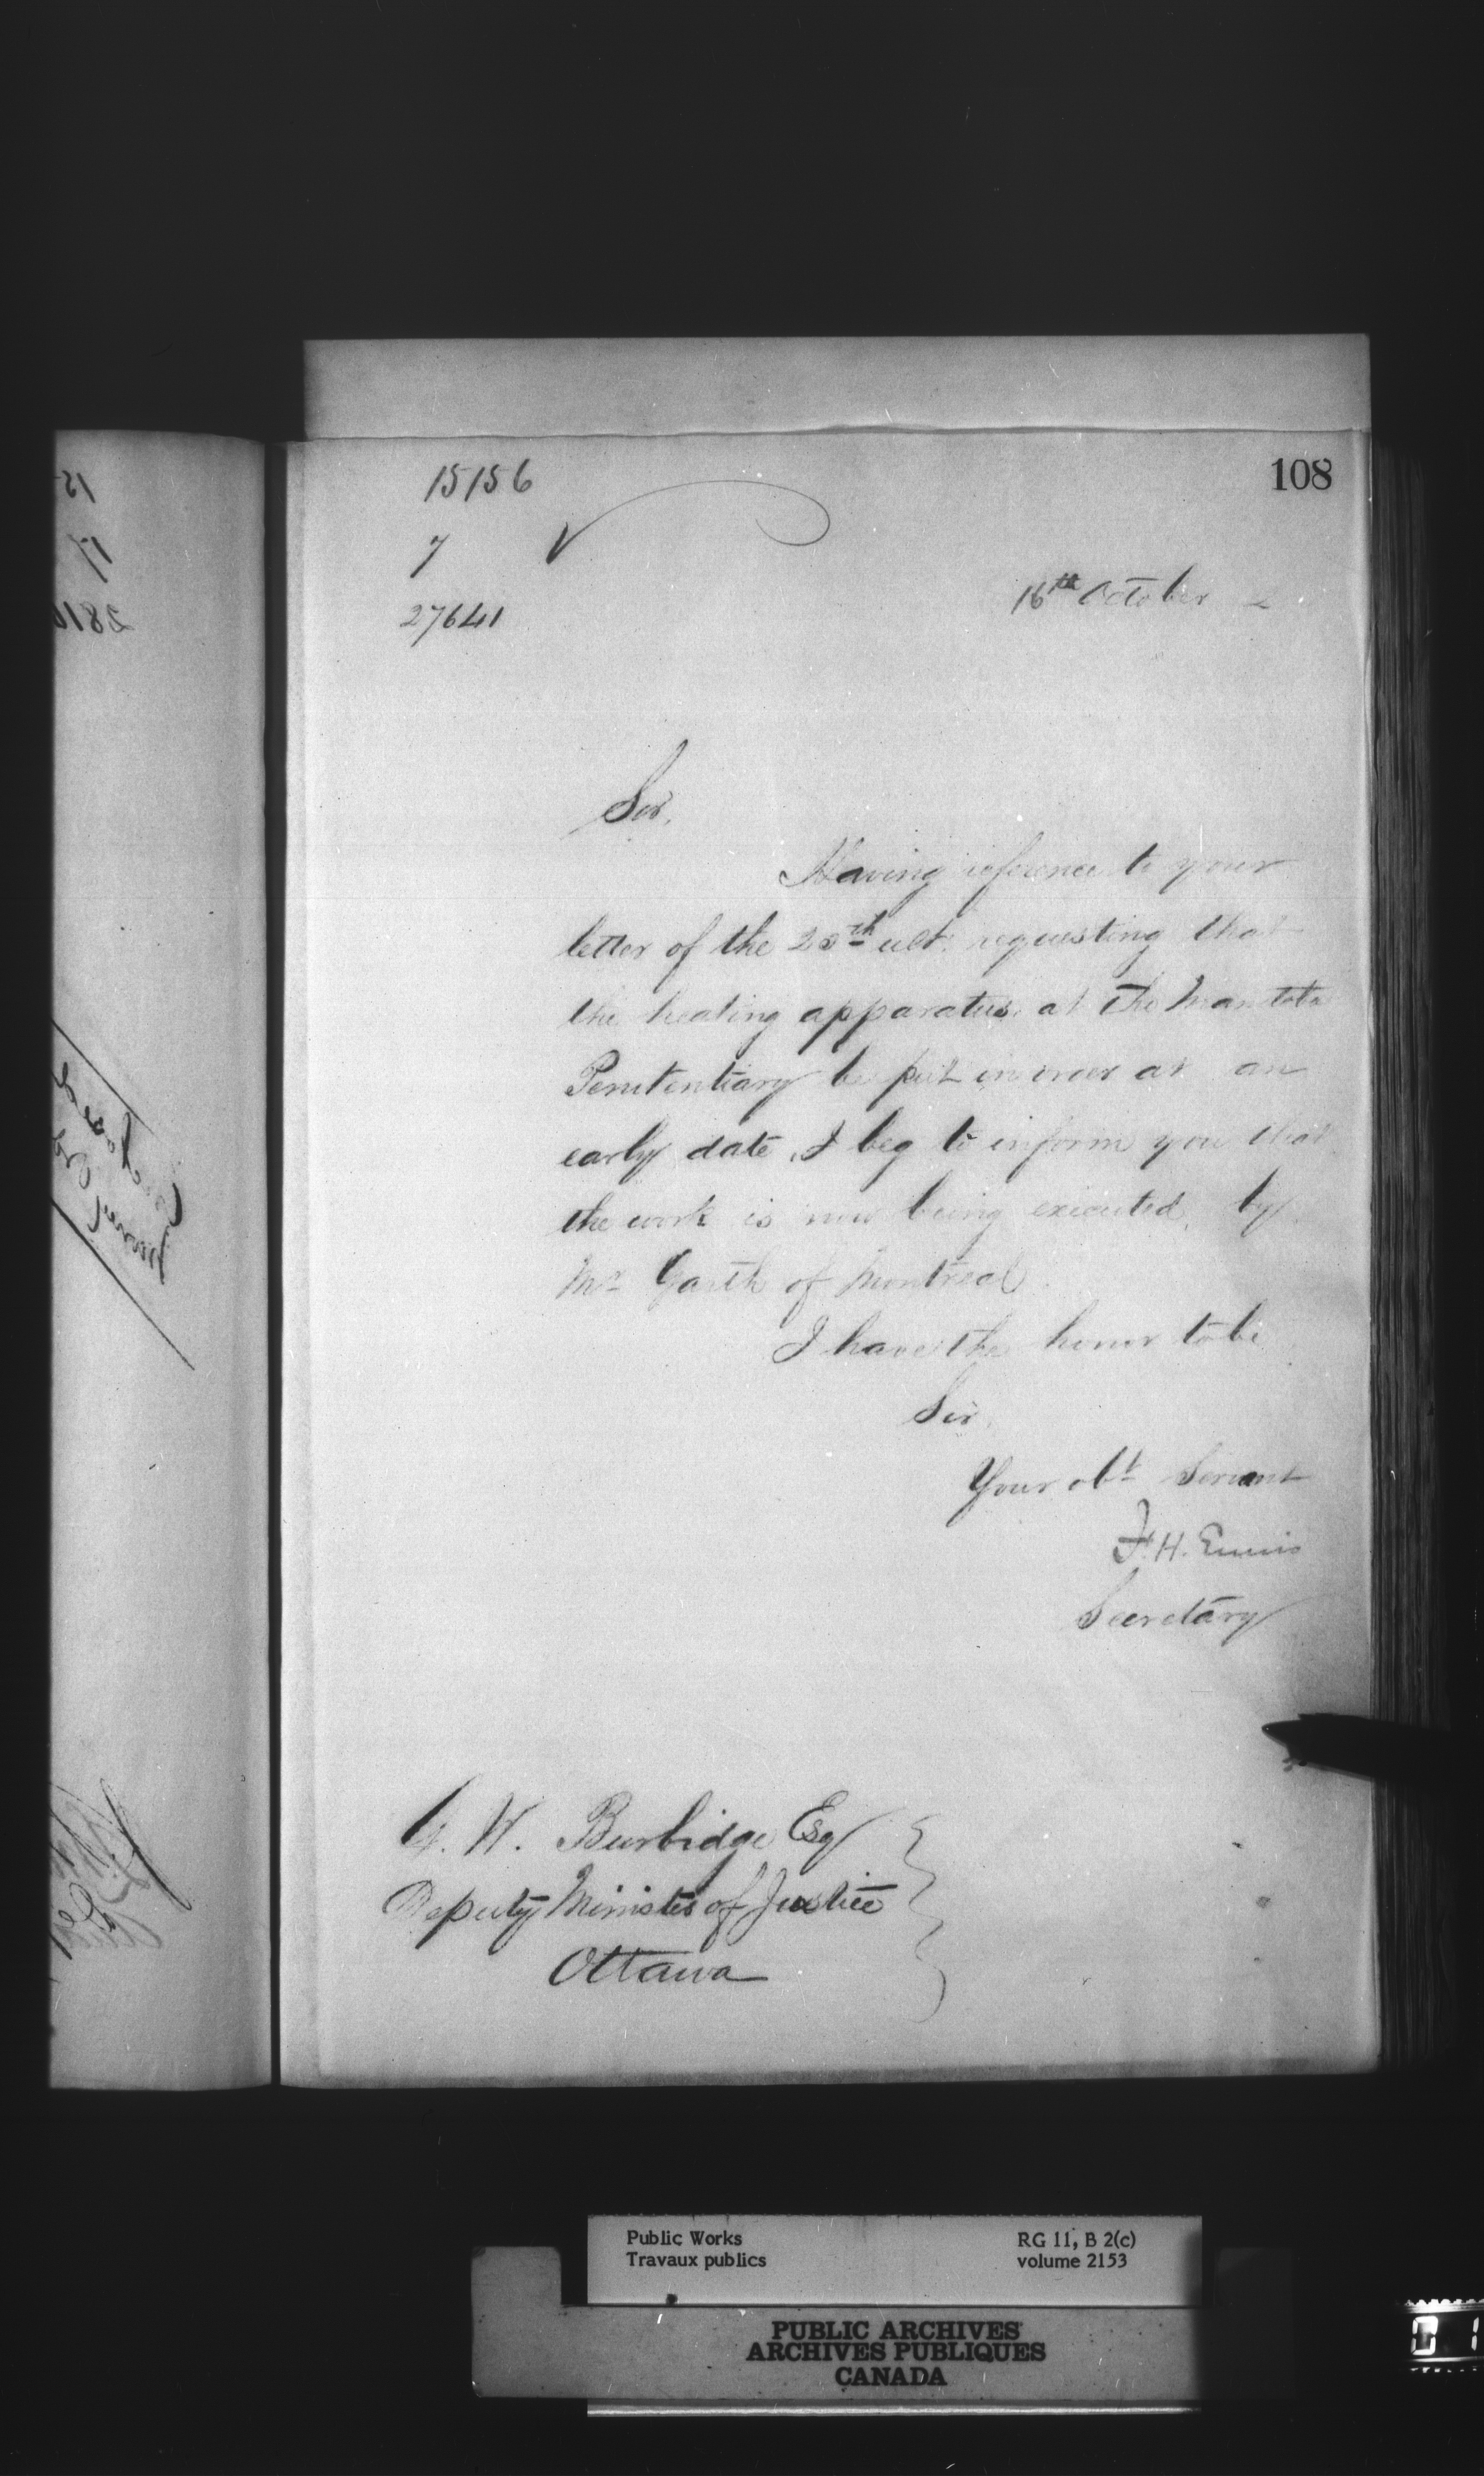 15156
108
7
16th October
27641
Sir,
Having reference to your
letter of the 25th ult. requesting that
the heating apparatus at the Manitoba
Penitentiary be put in order at an
early date, I beg to inform you that
the work is now being executed by
Mr Garth of Montreal.
I have the honor to be
Sir,
Your obt Servant
F. H. Ennis
Secretary
G. W. Burbidge Esq
Deputy Minister of Justice
Ottawa
Public Works
Travaux publics
RG 11, B 2(c)
volume 2153
PUBLIC ARCHIVES
ARCHIVES PUBLIQUES
CANADA